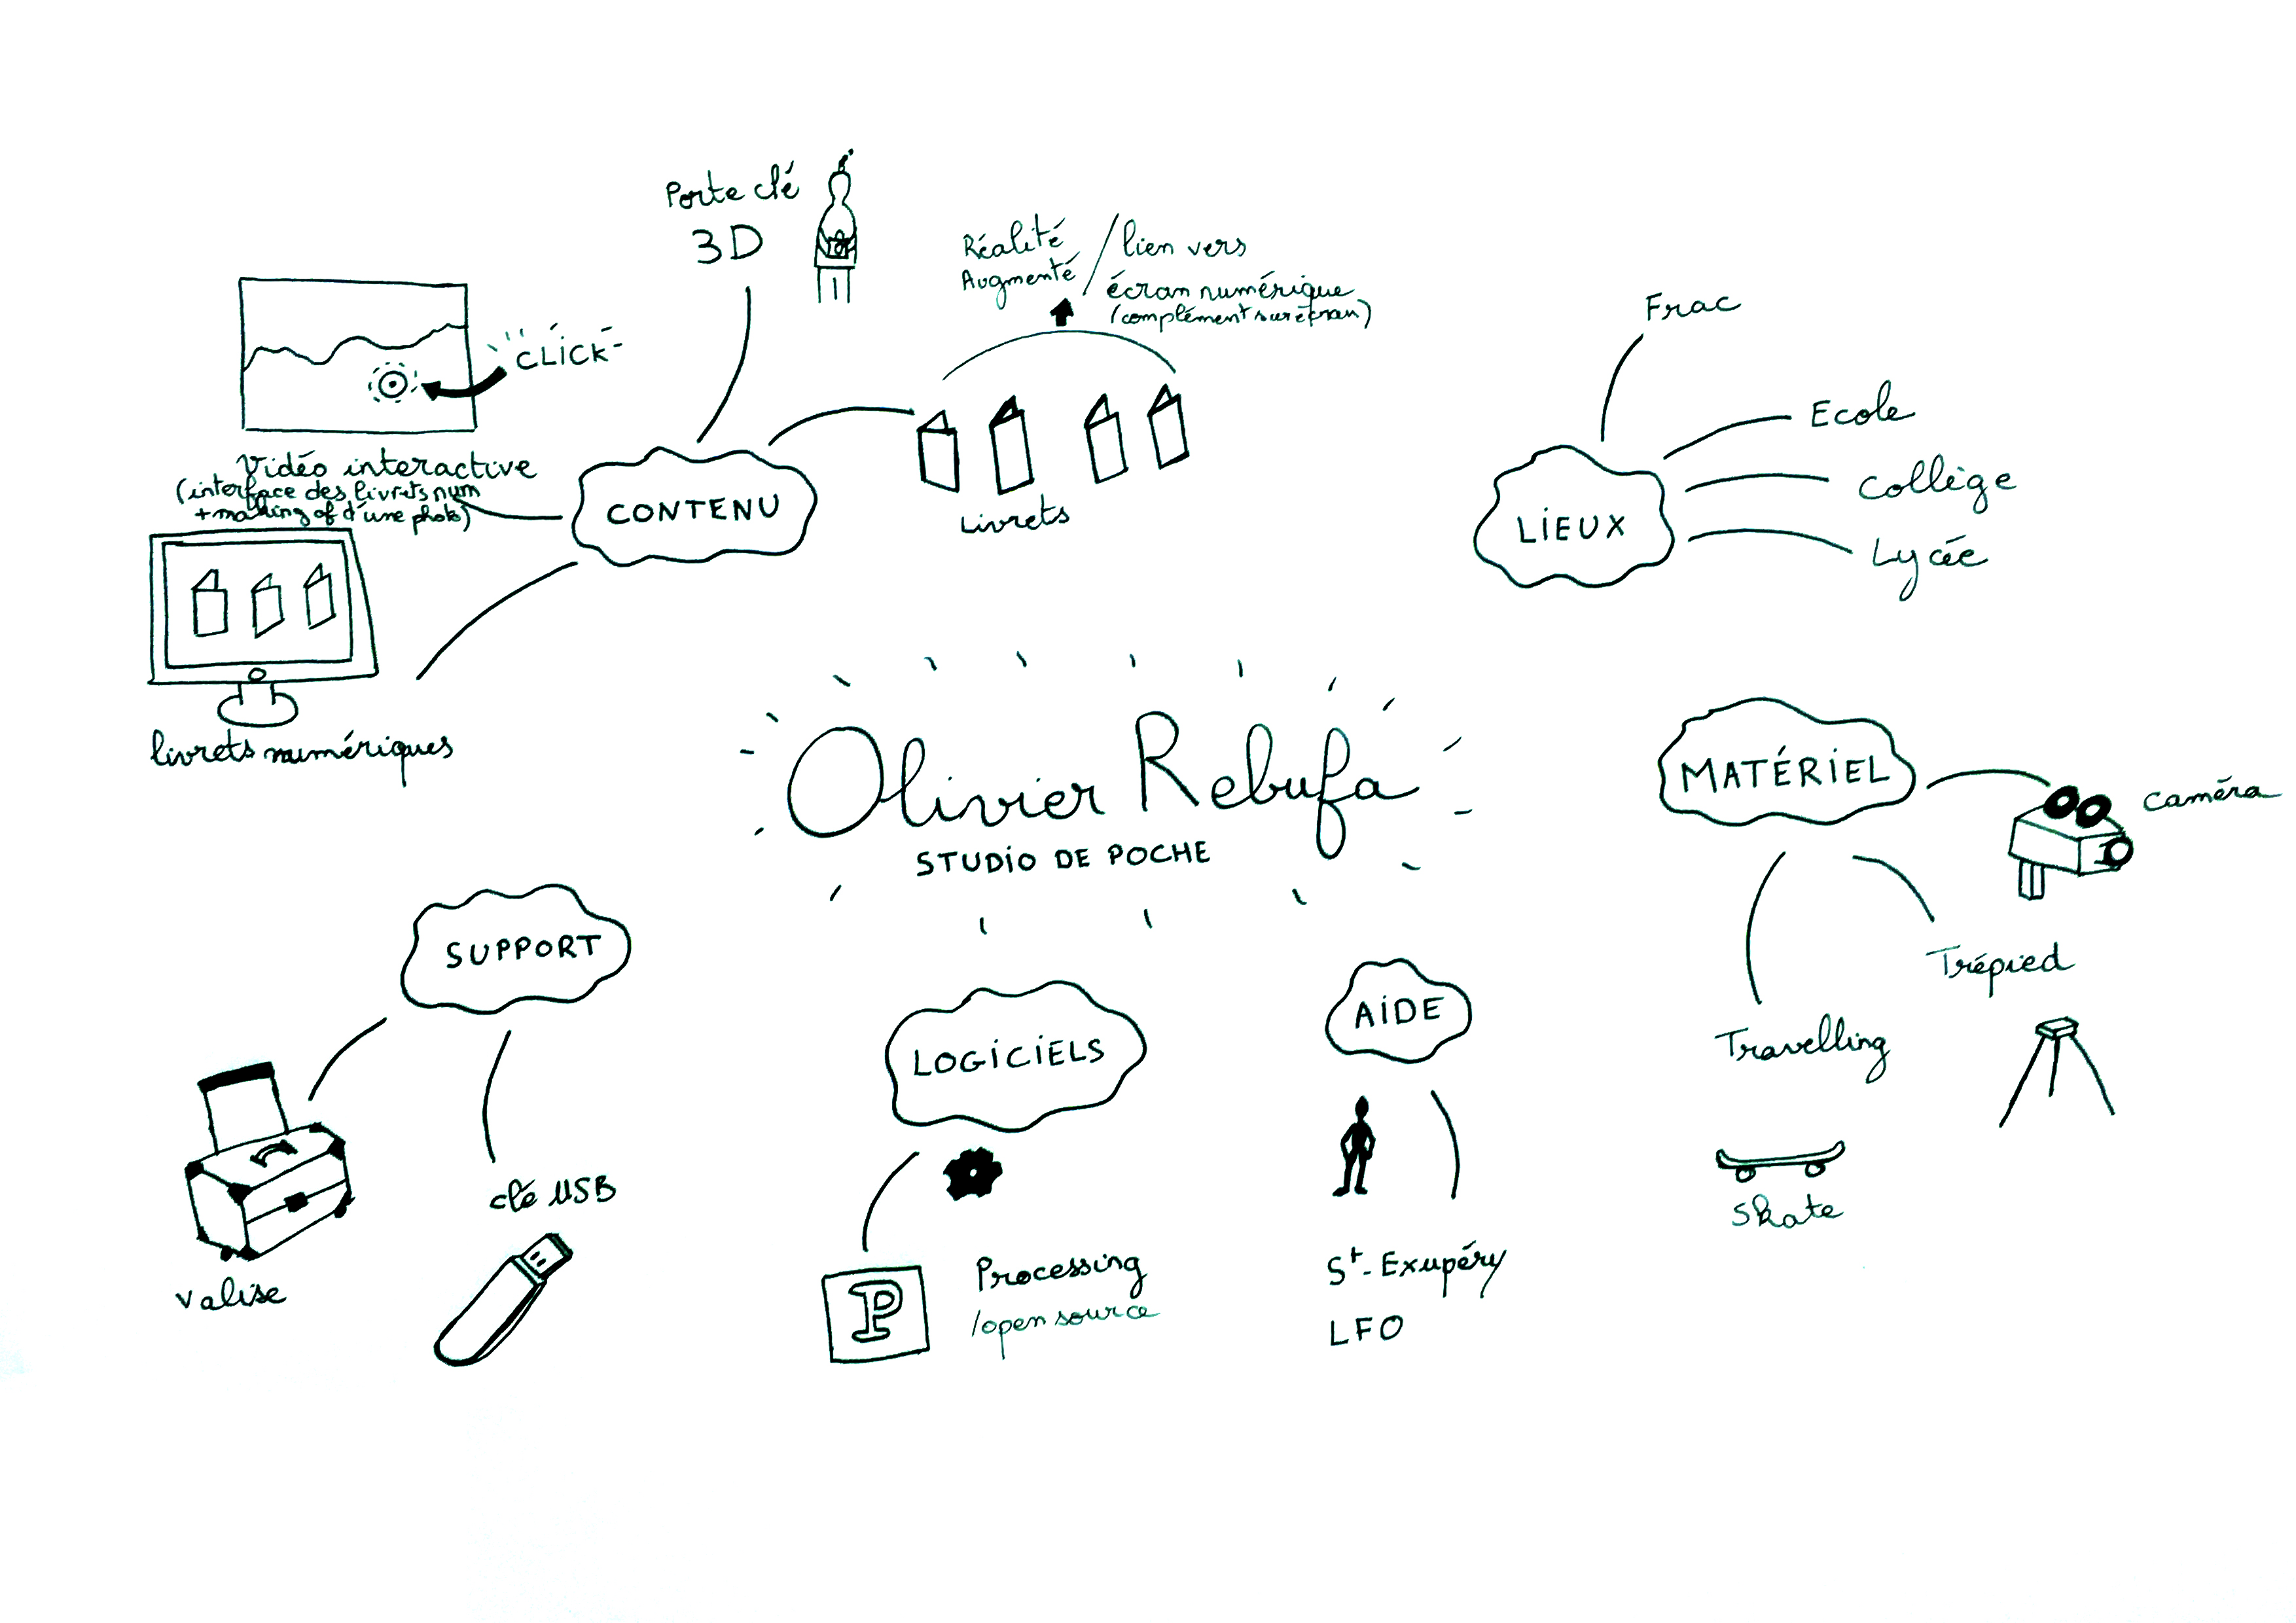 Porte clé
3D
Réalité
Augmenté
/ lien vers
écran numérique
(complément sur écran)
CLICK
Vidéo interactive
(interface des livrets num
+ making of d'une photo)
CONTENU
Livrets
livrets numériques
Frac
Ecole
Collège
Lycée
LIEUX
Olivier Rebufa
STUDIO DE POCHE
MATÉRIEL
caméra
Trépied
Travelling
Skate
SUPPORT
valise
clé USB
LOGICIELS
P
Processing
/open source
AIDE
St-Exupéry
LFO